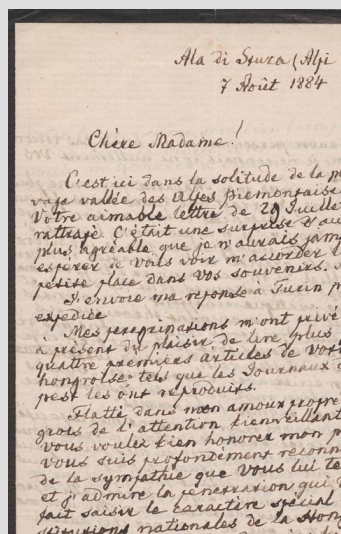 Ala di Stura (Alpi
7 Août 1884
Chère Madame!
C'est ici dans la solitude de la p
vage vallée des Alpes piemontaise
Votre aimable lettre de 29 Juille
rattrapé. C'était une surprise d'au
plus agréable que je n'aurais jam
esperer de vous voir m'accorder
petite place dans vos souvenirs.
J'envoie ma reponse à Turin p
expediée
Mes peregrinations m'ont privé
à présent du plaisir de lire plus
quattre premiers articles de vos
hongroise: tels que les Journaux
pest les ont reproduits.
Flatté dans mon amour propre
grois de l'attention bienveillant
vous voulez bien honorer mon p
vous suis profondement reconn
de la sympathie que vous lui te
et j'admire la penetration qui
fait saisir le caractère special
nationales de la Hon